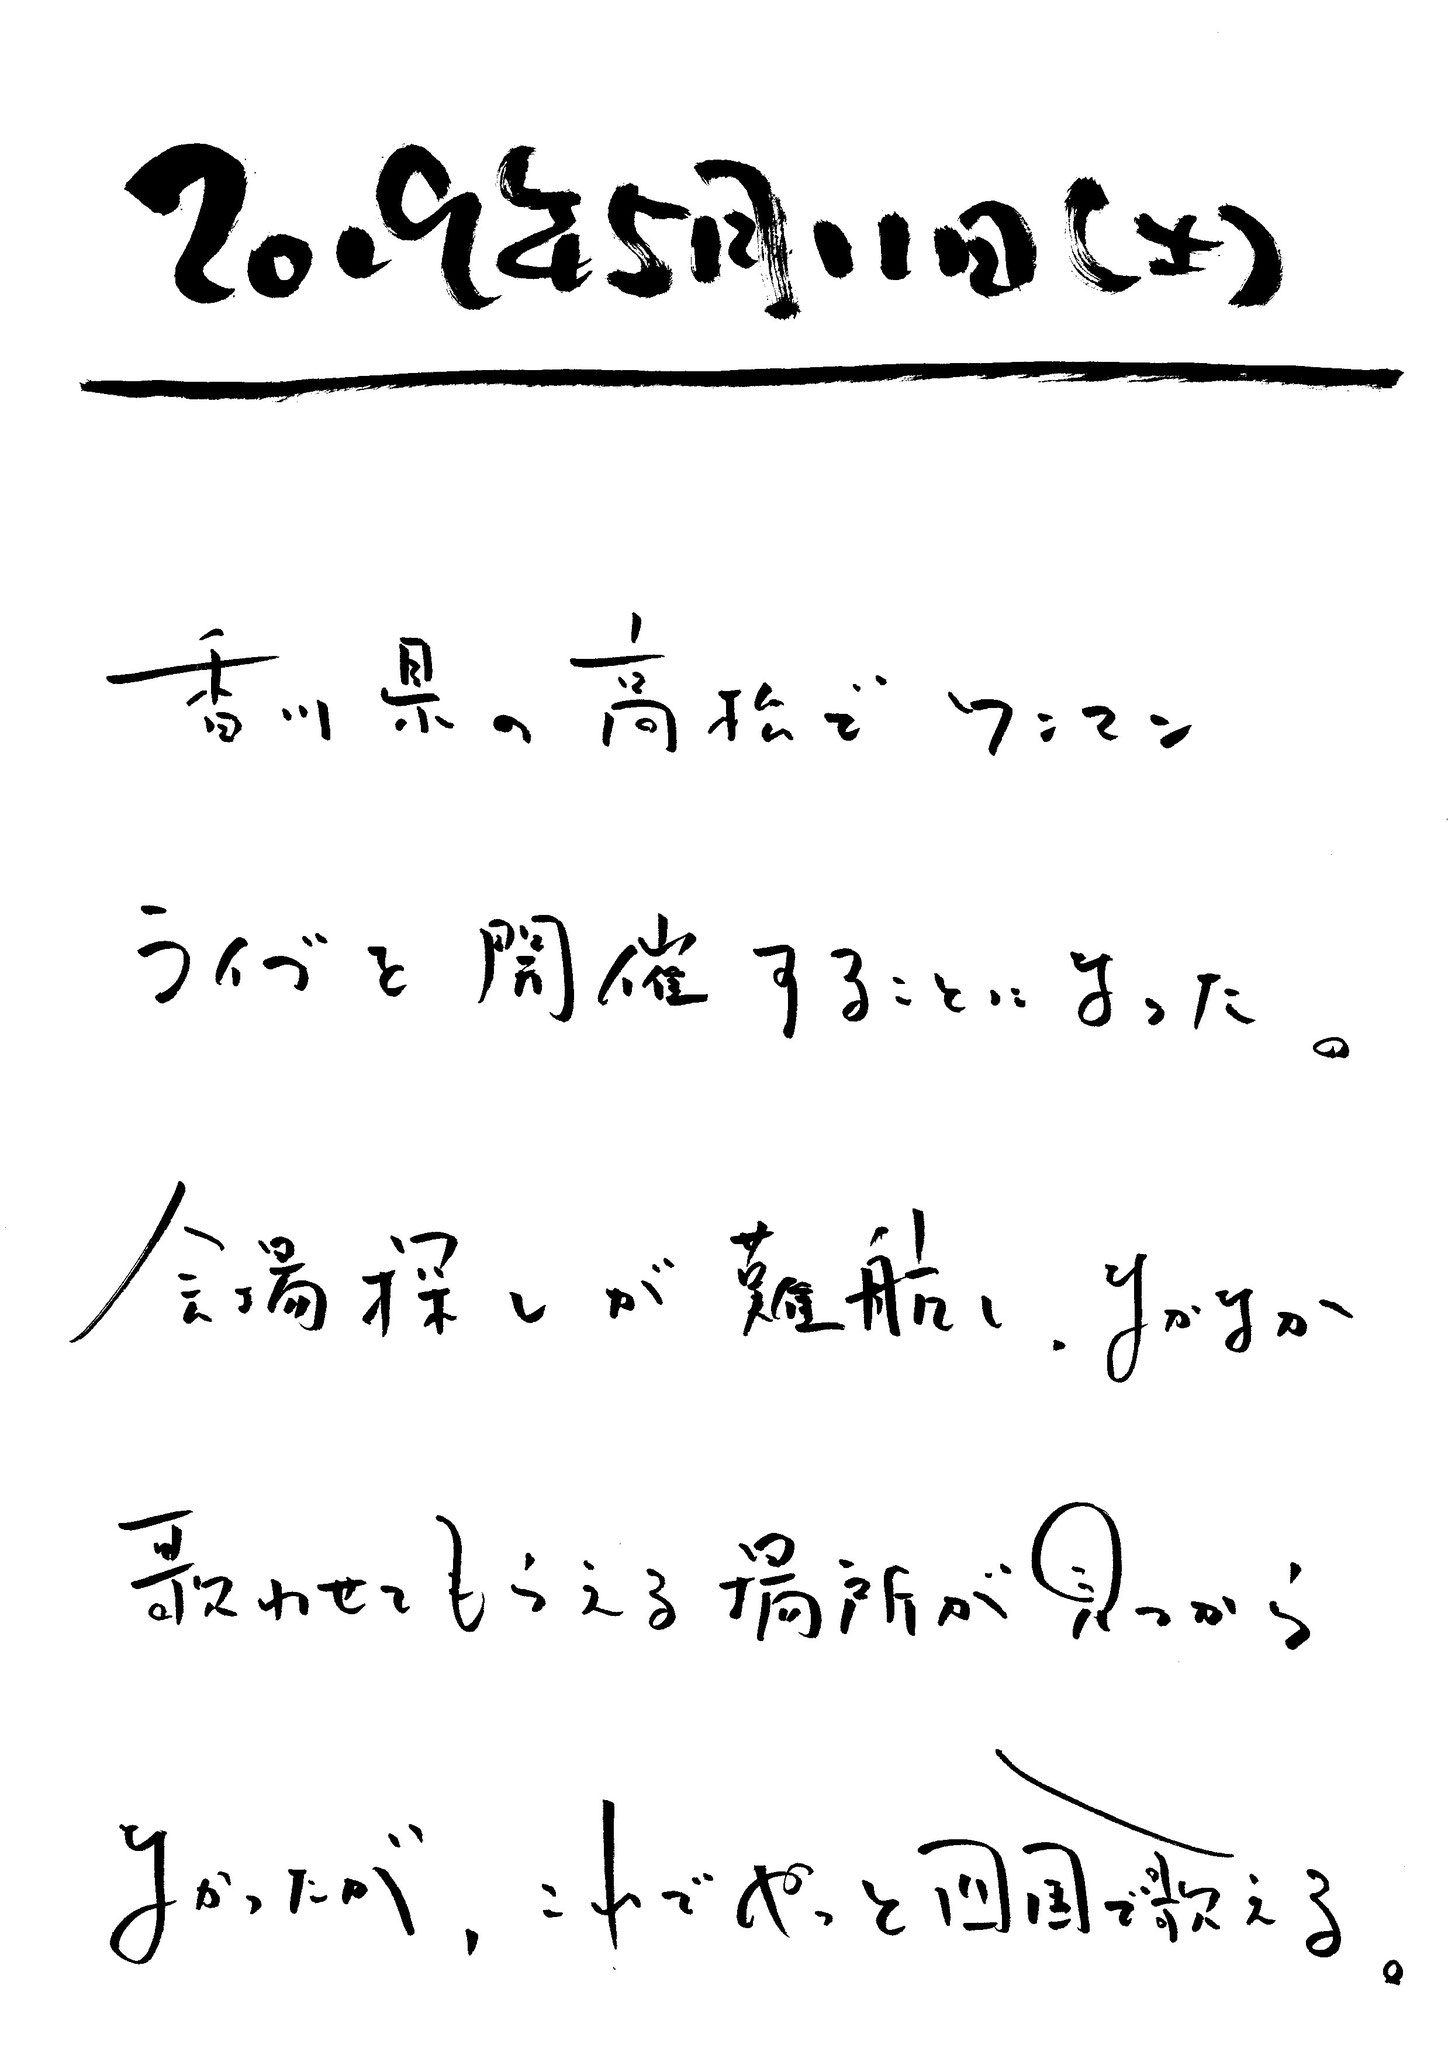 2019年5月11日(土)
香川県の高松でワンマン
ライブを開催することになった。
会場探しが難航し、なかなか
歌わせてもらえる場所が見つから
なかったが、これでやっと四国で歌える。